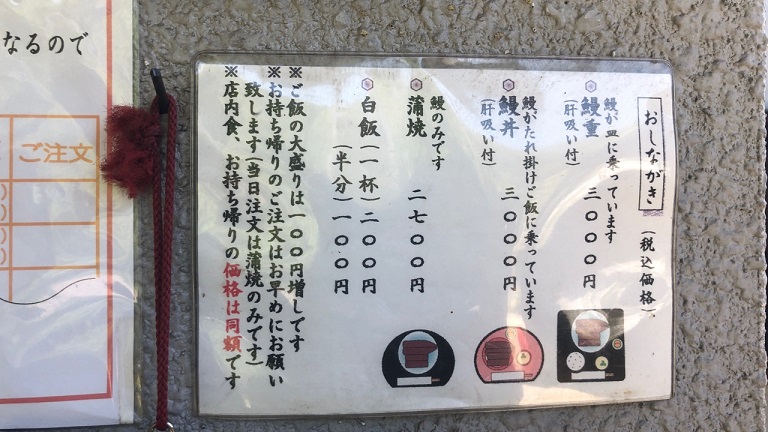 おしながき
（税込価格）
鰻が皿に乗っています
鰻重 三〇〇〇円
（肝吸い付）
鰻がたれ掛けご飯に乗っています
鰻丼 三〇〇〇円
（肝吸い付）
鰻のみです
蒲焼 二七〇〇円
白飯（一杯）二〇〇円
（半分）一〇〇円
※ご飯の大盛りは一〇〇円増しです
※お持ち帰りのご注文はお早めにお願い
致します（当日注文は蒲焼のみです）
※店内食、お持ち帰りの価格は同額です
なるので
ご注文